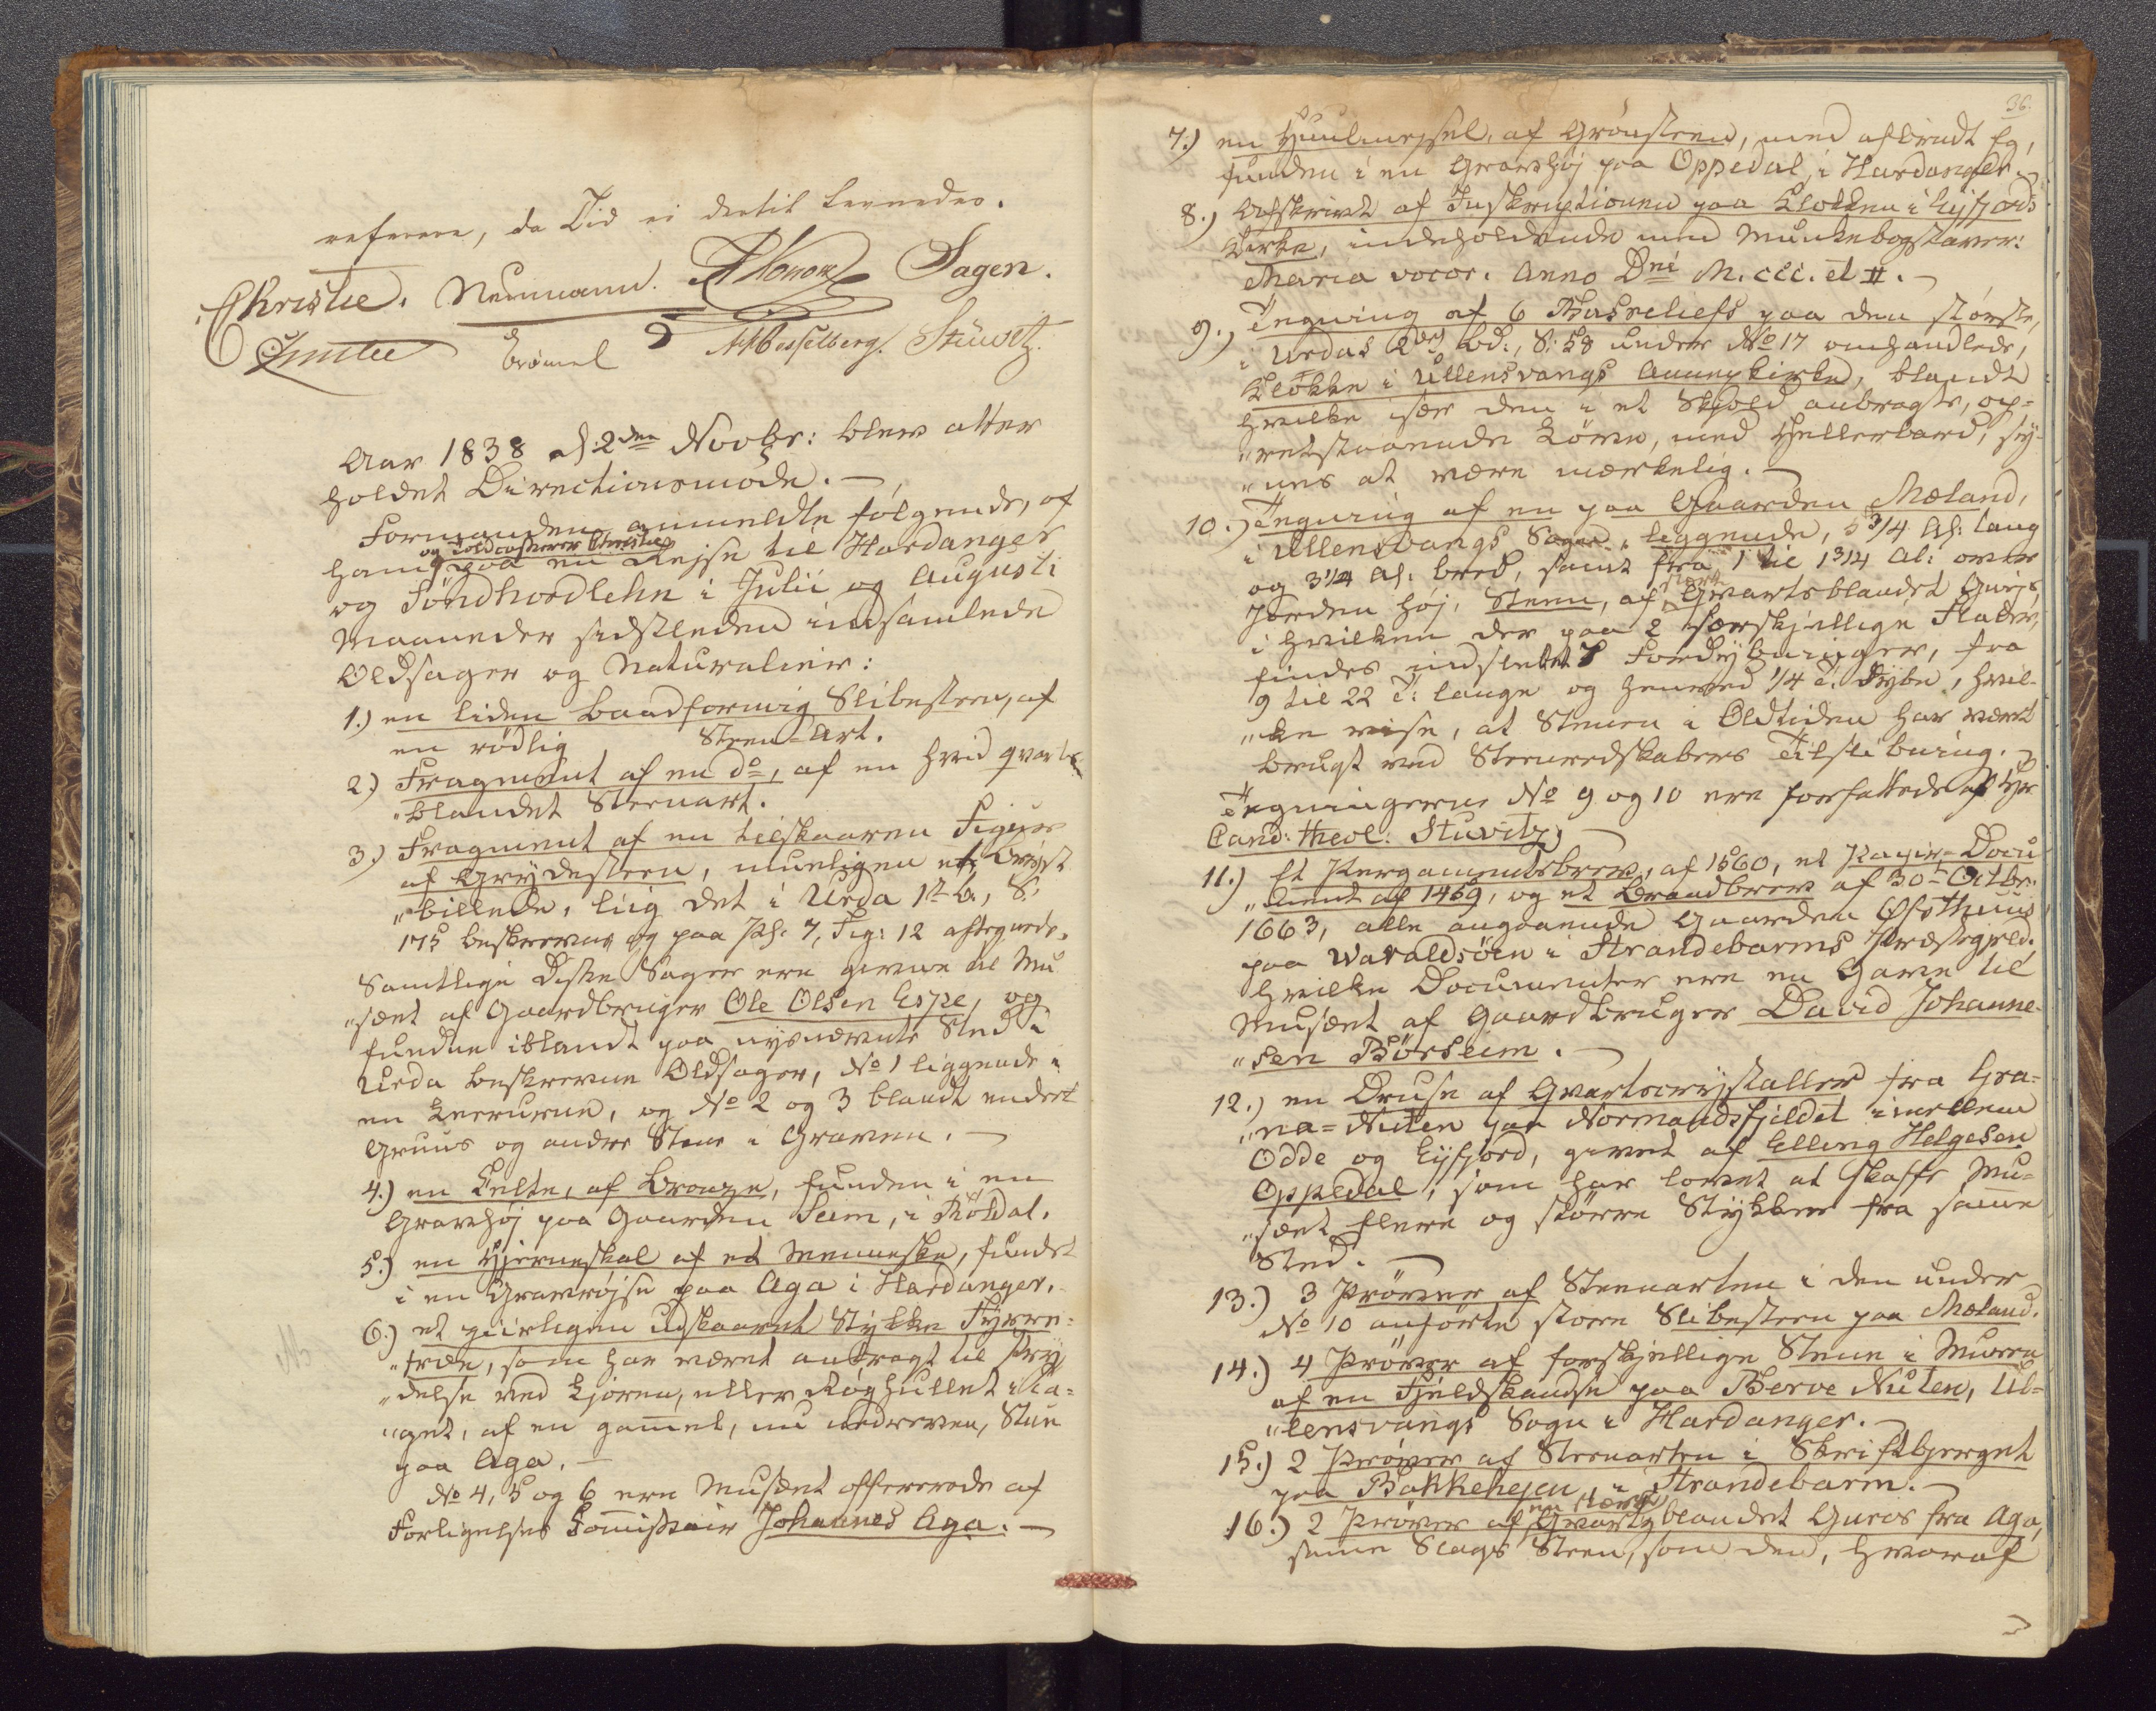 referere, da Tid ei dertil levnedes.
Christie. Neumann. Konow Sagen.
J Hesselberg. Stüwitz.
Aar 1838 d: 2den Novbr: blev atter
holdet Directionsmøde. —
Formanden anmeldte følgende, af
og Toldcasserer Christie
ham paa en Rejse til Hardanger
og Söndhordlehn i Julii og Augusti
Maaneder sidstleden indsamlede
Oldsager og Naturalier:
1.) en liden baadformig Slibesteen, af
en rødlig Steen-Art.
2.) Fragment af en do, af en hvid qvarts-
"blandet Steenart.
3.) Fragment af en tilskaaren Figur
af Grydesteen, mueligen et Bryst
"billede, liig det i Urda 1te B., S.
175 beskrevne og paa Pl. 7, Fig: 12 aftegnede.
Samtlige disse Sager ere givne til Mu
"sæet af Gaardbruger Ole Olsen Espe, og
fundne iblandt paa nysnævnte Sted i
Urda beskrevne Oldsager, No 1 liggende i
en Leerurne, og No 2 og 3 blandt andet
Gruus og andre Stene i Graven. —
4.) en Celte, af Bronze, funden i en
Gravhøj paa Gaarden Seim, i Røldal.
5.) en Hjerneskal af et Menneske, fundet
i en Gravrøjse paa Aga i Hardanger.
6.) et ziirligen udskaaret Stykke Fyrre-
"træe, som har været anbragt til Pry
"delse ved Ljoren, eller Røghullet i Ta-
"get, af en gammel, nu nedreven, Stue
paa Aga. —
No 4, 5 og 6 ere Musæet offererede af
Forligelses Commissair Johannes Aga. —
36.
7.) en Huulmejsel, af Grønsteen, med afbrudt Eg,
funden i en Gravhøj paa Oppedal, i Hardanger.
8.) Afskrivt af Inskriptionen paa Klokken i Eyfjords
Kirke, indeholdende med Munkebogstaver:
Maria vocor. Anno Dni M. ccc. et II. —
9.) Tegning af 6 Basreliefs paa den største,
i Urdas 2det Bd:, S: 58 under No 17 omhandlede,
Klokke i Ullensvangs Annexkirke, blandt
hvilke især den i et Skjold anbragte, op-
"retstaaende Løve, med Hellebard, sy-
"nes at være mærkelig. —
10.) Tegning af en paa Gaarden Mæland,
i Ullensvangs Sogn, liggende, 5 3/4 Al: lang
og 3 1/4 Al. bred, samt fra 1 til 1 3/4 Al: over
Jorden høj, Steen, af stærk Qvartsblandet Gnejs,
i hvilken der paa 2 særskjellige Flader,
findes indslebet 7 Fordybninger, fra
9 til 22 T: lange og henved 1/4 T: dybe, hvil-
"ke vise, at Stenen i Oldtiden har været
brugt ved Steenredskabers Tilslibning.
Tegningerne No 9 og 10 ere forfattede af Hr
Cand: theol: Stuvitz. —
11.) Et Pergamentsbrev, af 1560, et Papir-Docu
"ment af 1469, og et Brandbrev af 30te Octbr:
1663, alle angaaende Gaarden Øfsthuus
paa Varaldsöen i Strandebarms Præstegjeld.
Hvilke Documenter ere en Gave til
Musæet af Gaardbruger David Johanne-
"sen Börseim. —
12.) en Druse af Qvartscrystaller fra Gra-
"na-Nuten paa Normandsfjeldet imellem
Odde og Eyfjord, givet af Elling Helgesen
Oppedal, som har lovet at skaffe Mu-
"sæet flere og større Stykker fra samme
Sted. —
13.) 3 Prøver af Steenarten i den under
No 10 anførte store Slibesteen paa Mæland.
14.) 4 Prøver af forskjellige Stene i Muren
af en Fjeldskandse paa Berve Nuten, Ul-
"lensvangs Sogn i Hardanger. —
15.) 2 Prøver af Steenarten i Skriftbjerget
paa Bakkehejen, i Strandebarm. —
16.) 2 Prøver af en stærk Qvartsblandet Gneis fra Aga,
samme Slags Steen, som den, hvoraf